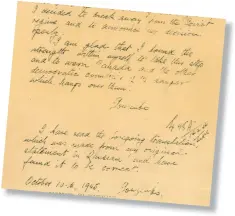 I decided to break away from the Soviet
regime and to announce my decision
openly.
I am glad that I found the
strength within myself to take this step
and to warn Canada and the other
democratic countries of the danger
which hangs over them.
I have read the foregoing translation
which was made from my original
statement in Russian and have
found it to be correct.
October 10th, 1945.